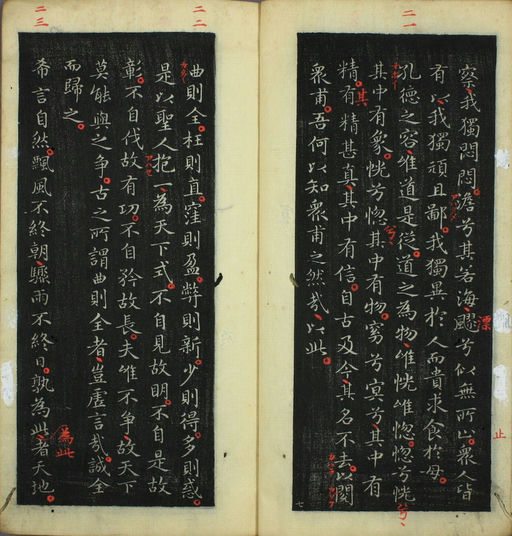 二一
察我獨悶悶澹兮其若海飂兮似無所止衆人皆
有以我獨頑且鄙我獨異於人而貴求食於母
孔德之容唯道是從道之為物唯恍唯惚惚兮恍
其中有象恍兮惚其中有物窈兮冥兮其中有
精有精甚真其中有信自古及今其名不去以閱
衆甫吾何以知衆甫之然哉以此
漂
止
其
兮
兮
七
二二
二三
曲則全枉則直窪則盈弊則新少則得多則惑
是以聖人抱一為天下式不自見故明不自是故
彰不自伐故有功不自矜故長夫唯不爭故天下
莫能與之爭古之所謂曲則全者豈虛言哉誠全
而歸之
希言自然飄風不終朝驟雨不終日孰為此者天地
為此